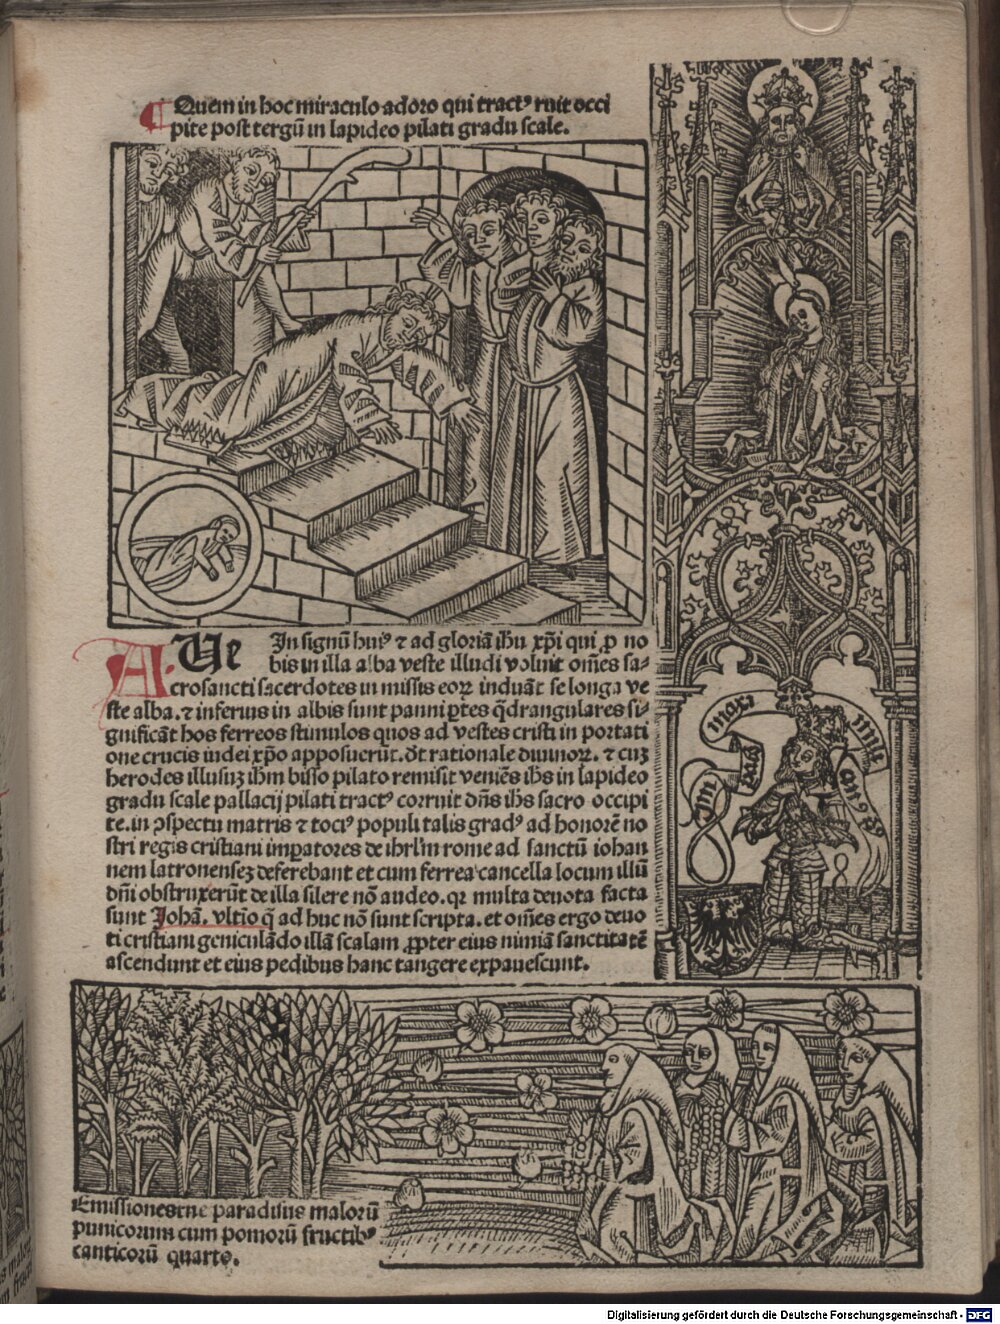 Quem in hoc miraculo adoro qui tractꝰ ruit occi
pite post tergū in lapideo pilati gradu scale.
A. Ue In signū huiꝰ ⁊ ad gloriā ihu xp̄i qui ꝓ no
bis in illa alba veste illudi voluit om̄es sa-
crosancti sacerdotes in missis eorꝝ induāt se longa ve
ste alba. ⁊ inferius in albis sunt panni ꝑtes q̄drangulares si-
gnificāt hos ferreos stimulos quos ad vestes cristi in portati
one crucis iudei xp̄o apposuerūt. vt rationale diuinoꝝ. ⁊ cuꝫ
herodes illusuꝫ ihm bisso pilato remisit veniēs ihs in lapideo
gradu scale pallacij pilati tractꝰ corruit dn̄s ihs sacro occipi
te. in ꝯspectu matris ⁊ tociꝰ populi talis gradꝰ ad honorē no
stri regis cristiani imꝑatores de ihrl'm rome ad sanctū iohan
nem latronenseꝫ deferebant et cum ferrea cancella locum illū
dn̄i obstruxerūt de illa silere nō audeo. qꝛ multa deuota facta
sunt Johā. vltīo q̄ ad huc nō sunt scripta. et om̄es ergo deuo
ti cristiani geniculādo illā scalam ꝓpter eius nimiā sanctitatē
ascendunt et eius pedibus hanc tangere expauescunt.
maxi
Emissiones tue paradisus malorū
punicorum cum pomorū fructibꝰ
canticorū quarto.
Digitalisierung gefördert durch die Deutsche Forschungsgemeinschaft - DFG